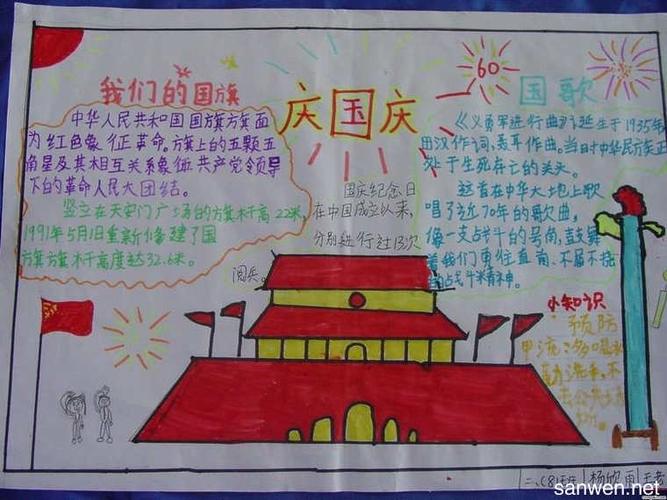 我们的国旗
中华人民共和国国旗旗面
为红色象征革命。旗上的五颗五
角星及其相互关系象征共产党领导
下的革命人民大团结。
竖立在天安门广场的旗杆高22米,
1991年5月1日重新修建了国
旗旗杆高度达32.6米。
庆国庆
国庆纪念日
在中国成立以来,
分别进行过13次
阅兵。
60
国歌
《义勇军进行曲》诞生于1935年
田汉作词,聂耳作曲。当时中华民族正
处于生死存亡的关头。
这首在中华大地上歌
唱了近70年的歌曲,
像一支战斗的号角,鼓舞
着我们勇往直前、不屈不挠
的战斗精神。
小知识
预防
甲流:多喝水
勤洗手,不
去公共场
所。
二、(8)班 杨欣雨
sanwen.net